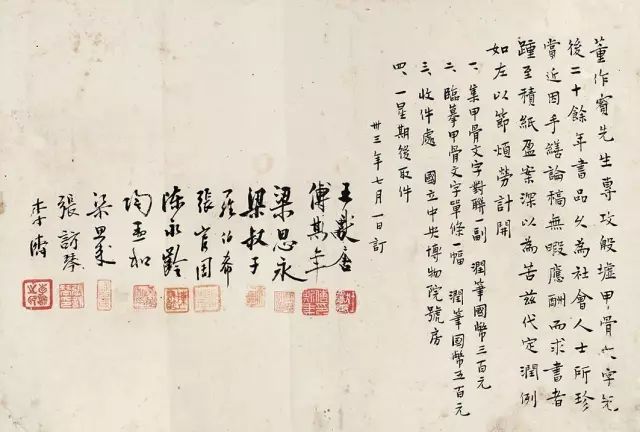 董作賓先生專攻殷墟甲骨文字先
後二十餘年書品久為社會人士所珍
賞近因手繕論稿無暇應酬而求書者
踵至積紙盈案深以為苦茲代定潤例
如左以節煩勞計開
一、集甲骨文字對聯一副 潤筆國幣三百元
二、臨摹甲骨文字單條一幅 潤筆國幣五百元
三、收件處 國立中央博物院號房
四、一星期後取件
卅三年七月一日訂
王獻唐
傅斯年
梁思永
梁叔子
羅伯希
張官周
陳永齡
陶孟和
梁思成
張訪琴
李濟